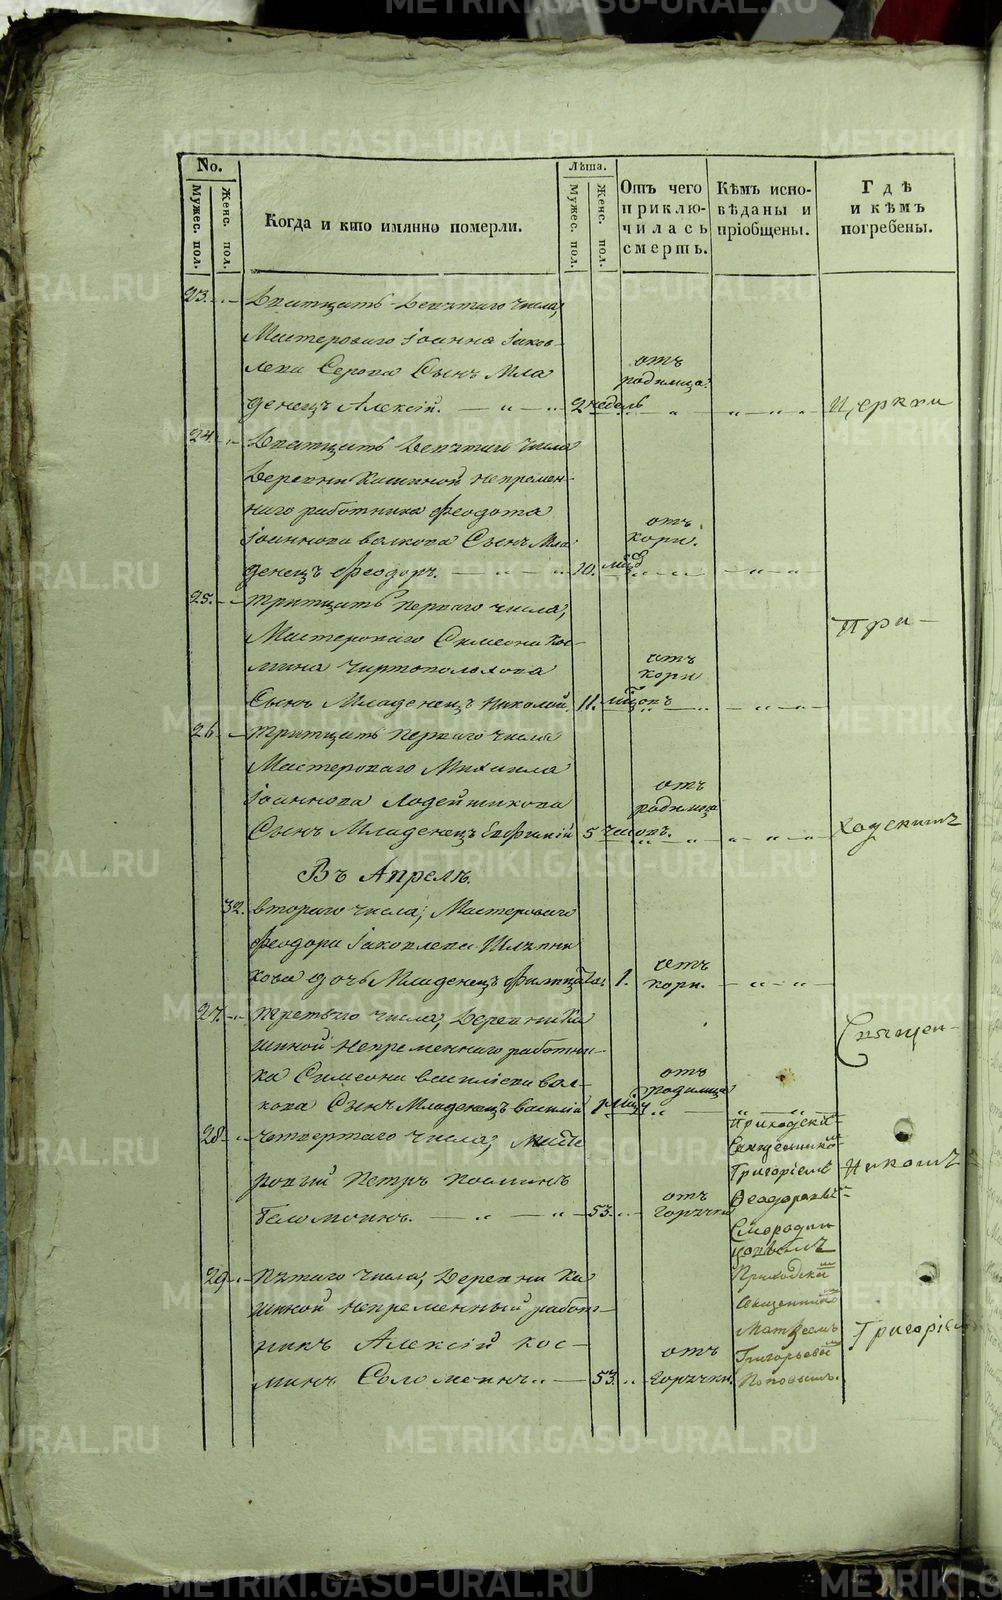 METRIKI.GASO-URAL.RU
No.
Мужес. пол.
Женс. пол.
Когда и кто имянно померли.
Лѣта.
Мужес. пол.
Женс. пол.
Отъ чего приклю-чилась смерть.
Кѣмъ испо-вѣданы и пріобщены.
Гдѣ и кѣмъ погребены.
23. Дватцать девятаго числа,
Мастероваго Іоанна Іаков-
лева Серова Сынъ Мла
денецъ Алексій. 2 недель
отъ родимца.
Церкви
24. Дватцать девятаго числа
Деревни Кашиной непремен-
наго работника Феодота
Іоаннова Волкова Сынъ Мла
денецъ Феодоръ. 10. мѣс
отъ кори.
25. Тритцать перваго числа,
Мастероваго Симеона Кос-
мина Чиртополохова
Сынъ Младенецъ Николай. 11.
отъ кори
При-
26. Тритцать перваго числа
Мастероваго Михаила
Іоаннова Лодейщикова
Сынъ Младенецъ Евфимій 5 часовъ.
отъ родимца
ходскимъ
Въ Апрелѣ.
32. втораго числа, Мастероваго
Феодора Іаковлева
кова дочь Младенецъ 1.
отъ кори.
27. третьяго числа, Деревни Ка
шиной Непременнаго работни-
ка Симеона василіева вол-
кова Сынъ Младенецъ василій 1
отъ родимца
Священ-
28. четвертаго числа, Масте
ровый Петръ Косминъ
53.
отъ Горячки
Приходскимъ
Священникомъ
Григоріемъ
Феодоровымъ
Смородин
цовымъ
никомъ
29. Пятаго числа, Деревни Ка
шиной непременный работ-
никъ Алексій Кос-
минъ Соломеинъ. 53.
отъ Горячки.
Приходскимъ
Священникомъ
Матвеемъ
Григорьевымъ
Поповымъ.
Григоріемъ